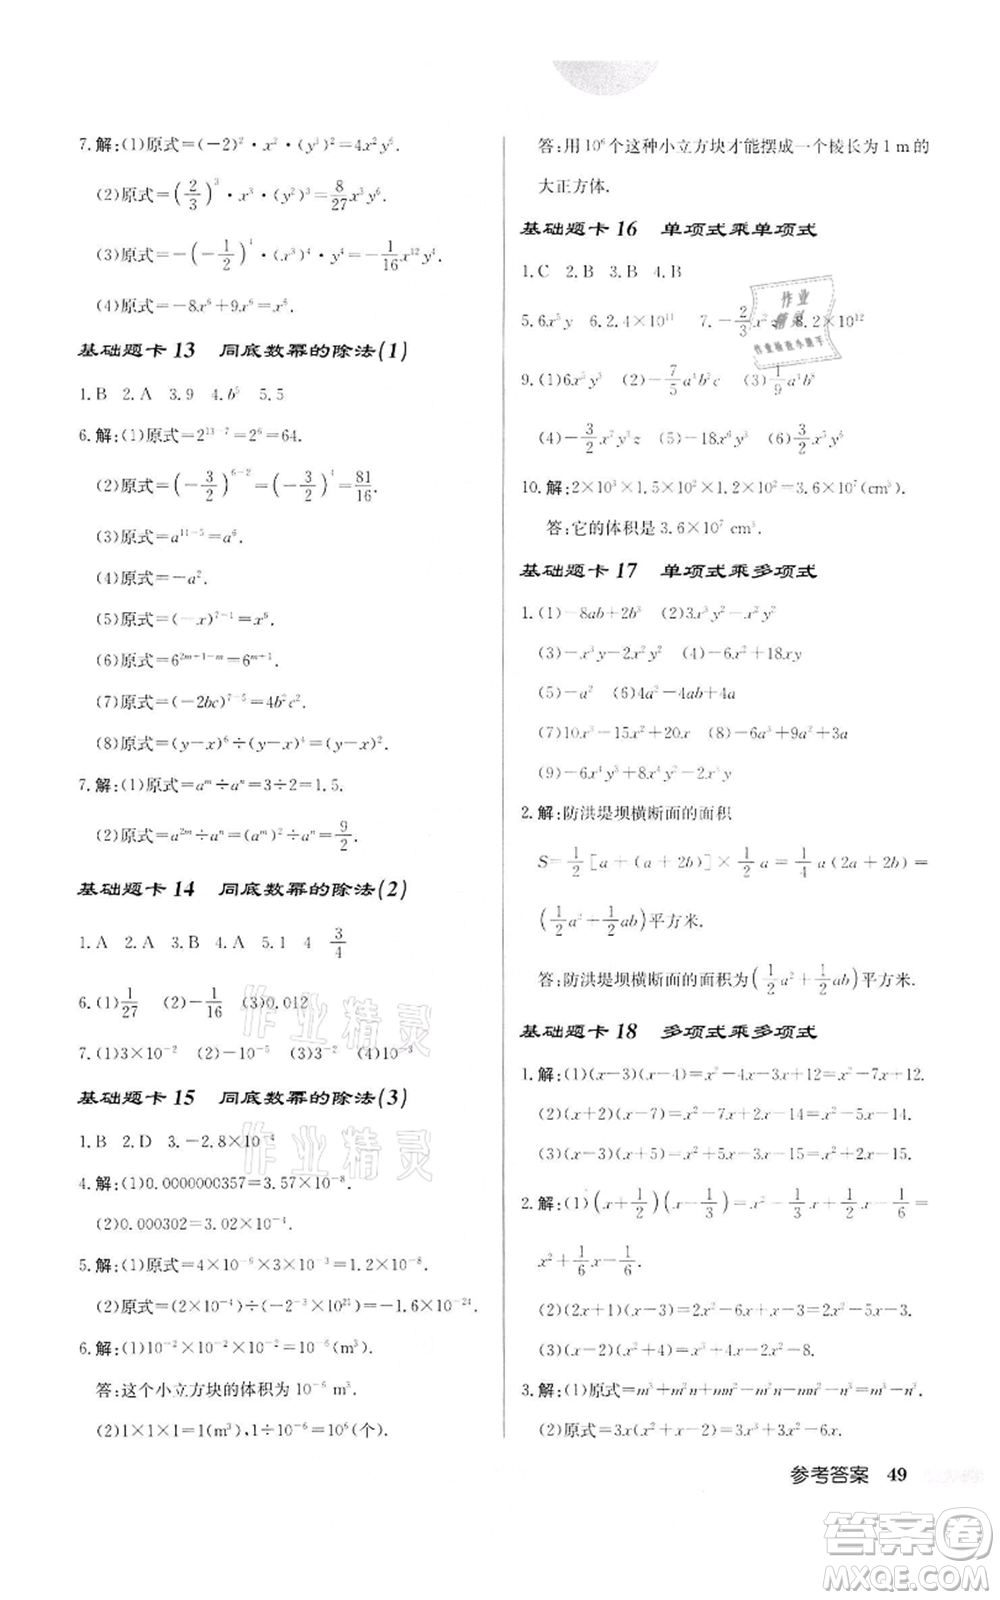 7.解:(1)原式=(-2)²·x²·(y³)²=4x²y⁶.
(2)原式=(2/3)³·x³·(y²)³=8/27x³y⁶.
(3)原式=-(-1/2)⁴·(x³)⁴·y⁴=-1/16x¹²y⁴.
(4)原式=-8x⁶+9x⁶=x⁶.
基础题卡13 同底数幂的除法(1)
1.B 2.A 3.9 4.b⁵ 5.5
6.解:(1)原式=2¹³⁻⁷=2⁶=64.
(2)原式=(-3/2)⁶⁻²=(-3/2)⁴=81/16.
(3)原式=a¹¹⁻⁵=a⁶.
(4)原式=-a².
(5)原式=(-x)⁷⁻¹=x⁶.
(6)原式=6²ᵐ⁺¹⁻ᵐ=6ᵐ⁺¹.
(7)原式=(-2bc)⁷⁻⁵=4b²c².
(8)原式=(y-x)⁶÷(y-x)⁴=(y-x)².
7.解:(1)原式=aᵐ÷aⁿ=3÷2=1.5.
(2)原式=a²ᵐ÷aⁿ=(aᵐ)²÷aⁿ=9/2.
基础题卡14 同底数幂的除法(2)
1.A 2.A 3.B 4.A 5.1 4 3/4
6.(1)1/27 (2)-1/16 (3)0.012
7.(1)3×10⁻² (2)-10⁻⁵ (3)10⁻⁴ (4)10⁻³
基础题卡15 同底数幂的除法(3)
1.B 2.D 3.-2.8×10⁻⁹
4.解:(1)0.0000000357=3.57×10⁻⁸.
(2)0.000302=3.02×10⁻⁴.
5.解:(1)原式=4×10⁻⁶×3×10⁻³=1.2×10⁻⁸.
(2)原式=(2×10⁻⁴)÷(-2⁻³×10²¹)=-1.6×10⁻²⁴.
6.解:(1)10⁻²×10⁻²×10⁻²=10⁻⁶(m³).
答:这个小立方块的体积为10⁻⁶ m³.
(2)1×1×1=1(m³),1÷10⁻⁶=10⁶(个).
答:用10⁶个这种小立方块才能摆成一个棱长为1 m的
大正方体.
基础题卡16 单项式乘单项式
1.C 2.B 3.B 4.B
5.6x⁵y 6.2.4×10¹¹ 7.-2/3x²z 8.2×10¹²
9.(1)6x⁵y³ (2)-7/5a⁴b²c (3)1/9a³b
(4)-3/2x²y³z (5)-18x⁶y³ (6)3/2x⁵y⁶
10.解:2×10³×1.5×10²×1.2×10²=3.6×10⁷(cm³).
答:它的体积是3.6×10⁷ cm³.
基础题卡17 单项式乘多项式
1.(1)-8ab+2b³ (2)3x³y²-x²y²
(3)-x³y-x²y² (4)-6x²+18xy
(5)-a² (6)4a²-4ab+4a
(7)10x³-15x²+20x (8)-6a³+9a²+3a
(9)-6x³-4x²-x
2.解:防洪堤坝横断面的面积
S=1/2[a+(a+2b)]×1/2a=1/4a(2a+2b)=
(1/2a²+1/2ab)平方米.
答:防洪堤坝横断面的面积为(1/2a²+1/2ab)平方米.
基础题卡18 多项式乘多项式
1.解:(1)(x-3)(x-4)=x²-4x-3x+12=x²-7x+12.
(2)(x+2)(x-7)=x²-7x+2x-14=x²-5x-14.
(3)(x-5)(x+3)=x²+3x-5x-15=x²-2x-15.
2.解:(1)(x+1/2)(x-1/3)=x²-1/3x+1/2x-1/6=
x²+1/6x-1/6.
(2)(2x+1)(x-3)=2x²-6x+x-3=2x²-5x-3.
(3)(x-2)(x+4)=x²+4x-2x-8=x²+2x-8.
3.解:(1)原式=m³+m²n+mn²-m²n-mn²-n³=m³-n³.
(2)原式=3x(x²+x-2)=3x³+3x²-6x.
参考答案 49
作业
精灵
作业检查小能手
作业精灵
作业精灵
答案卷
MXQE.COM